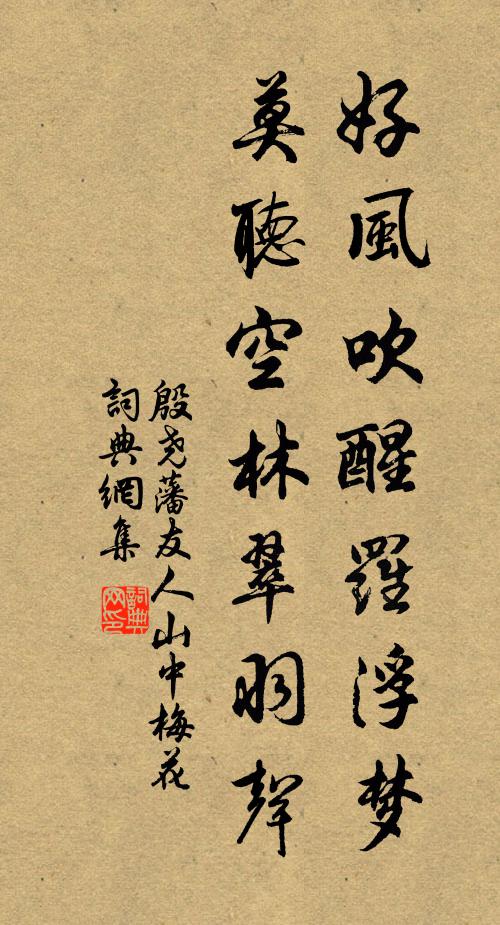 好風吹醒羅浮梦
莫聽空林翠羽聲
殷尭藩友人山中梅花
詞典網集
詞典
网印